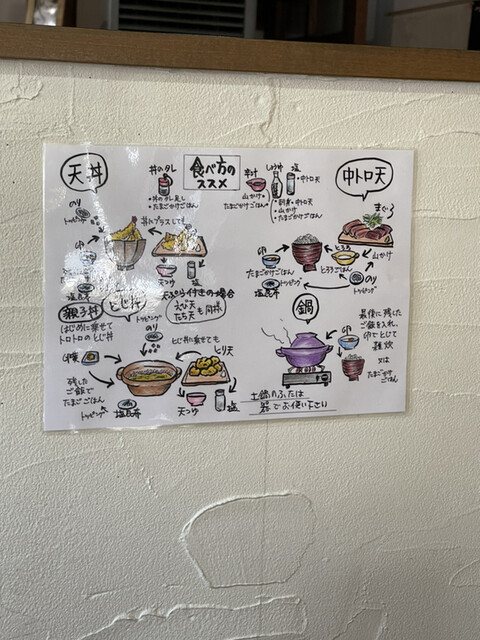 食べ方の
ススメ
天丼
のり
トッピング
卵
塩昆布
丼のタレ
・丼のタレ足し
・たまごかけごはん
丼にプラスしても
天つゆ
塩
天ぷら付きの場合
えび天
たち天も同様
辛汁
しょうゆ
塩
・中トロ天
山かけ
たまごかけごはん
・刺身・中トロ天
・山かけ
・たまごかけごはん
中トロ天
まぐろ
卵
たまごかけごはん
とろろ
とろろごはん
山かけ
塩昆布
トッピング
のり
トッピング
親子丼
とじ丼
はじめに乗せて
トロトロのとじ丼
トッピング
のり
とじ丼に乗せても
とり天
卵黄
残した
ご飯で
たまごごはん
トッピング
塩昆布
天つゆ
塩
鍋
最後に残した
ご飯を入れ、
卵でとじて
雑炊
又は
たまごかけ
ごはん
卵
土鍋のふたは
器でお使い下さい